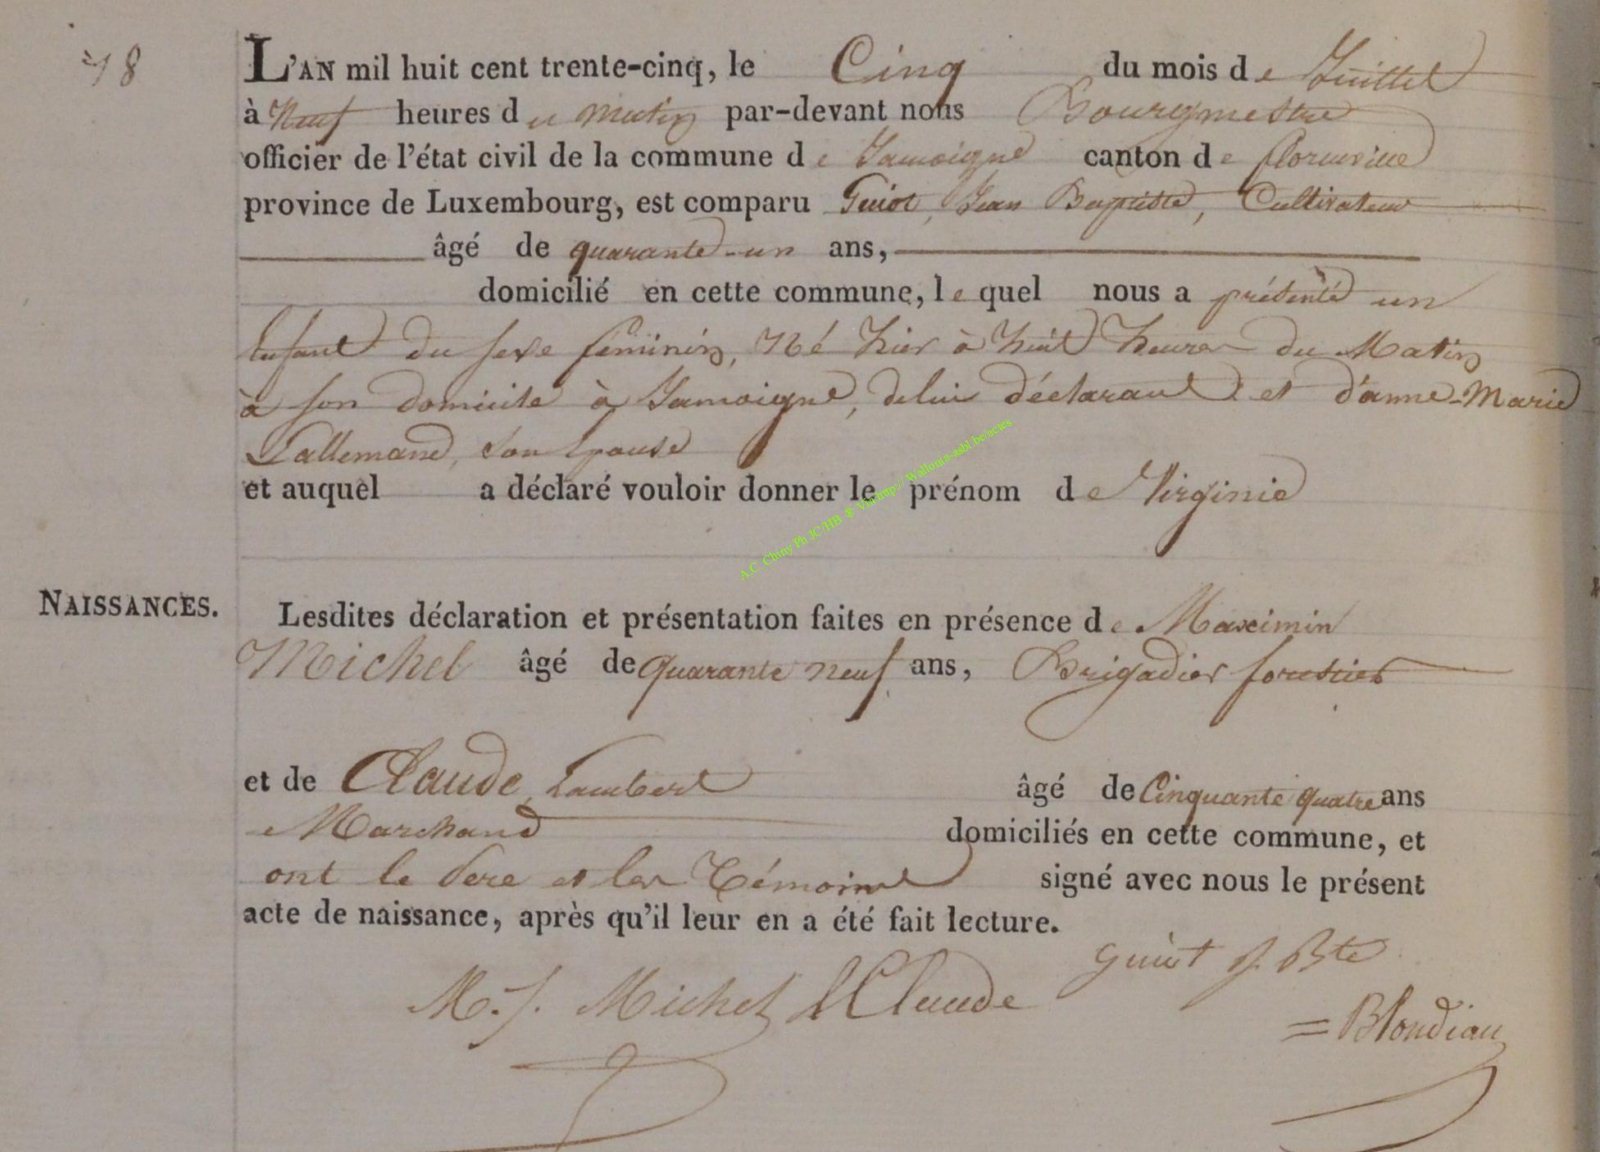 18
L'AN mil huit cent trente-cinq, le Cinq du mois de Juillet
à Neuf heures du matin par-devant nous Bourgmestre
officier de l'état civil de la commune de Jamoigne canton de florenville
province de Luxembourg, est comparu Guiot, Jean Baptiste, Cultivateur
âgé de quarante-un ans,
domicilié en cette commune, lequel nous a présenté un
Enfant du sexe féminin, Né hier à huit heures du Matin
à son domicile à Jamoigne, de lui déclarant et d'anne-Marie
Lallemand, son Epouse
et auquel a déclaré vouloir donner le prénom de Virginie
A.C. Chiny Ph JC/HB & Vinc
Wallonia-asbl.be/actes
NAISSANCES.
Lesdites déclaration et présentation faites en présence de Maximin
Michel âgé de quarante neuf ans, Brigadier forestier
et de Claude, Lambert âgé de Cinquante quatre ans
Marchand domiciliés en cette commune, et
ont le Pere et les Témoins signé avec nous le présent
acte de naissance, après qu'il leur en a été fait lecture.
Guiot J. Bte
M. J. Michel LClaude
= Blondiau